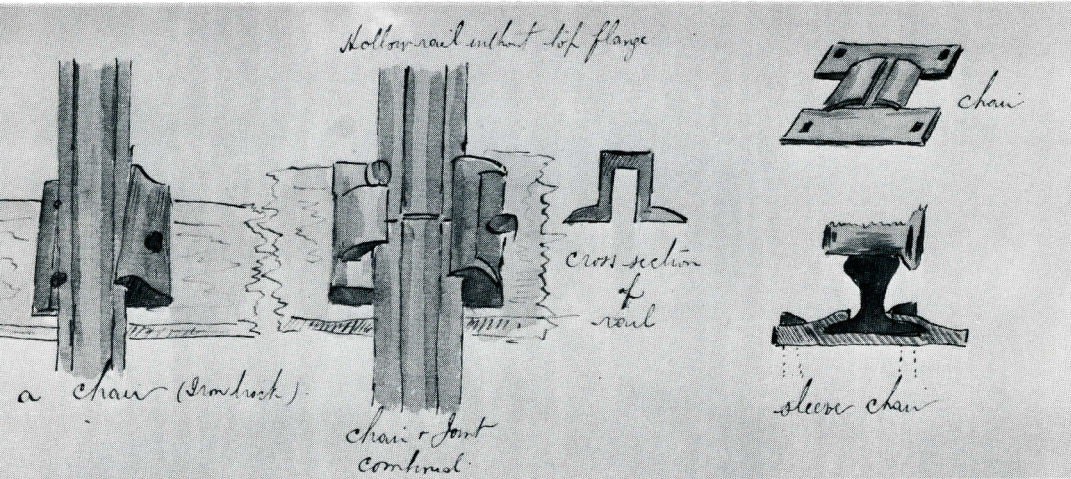 Hollow rail without top flange
chair
cross section
of
rail
a chair (Iron track)
chair & Joint
combined.
sleeve chair